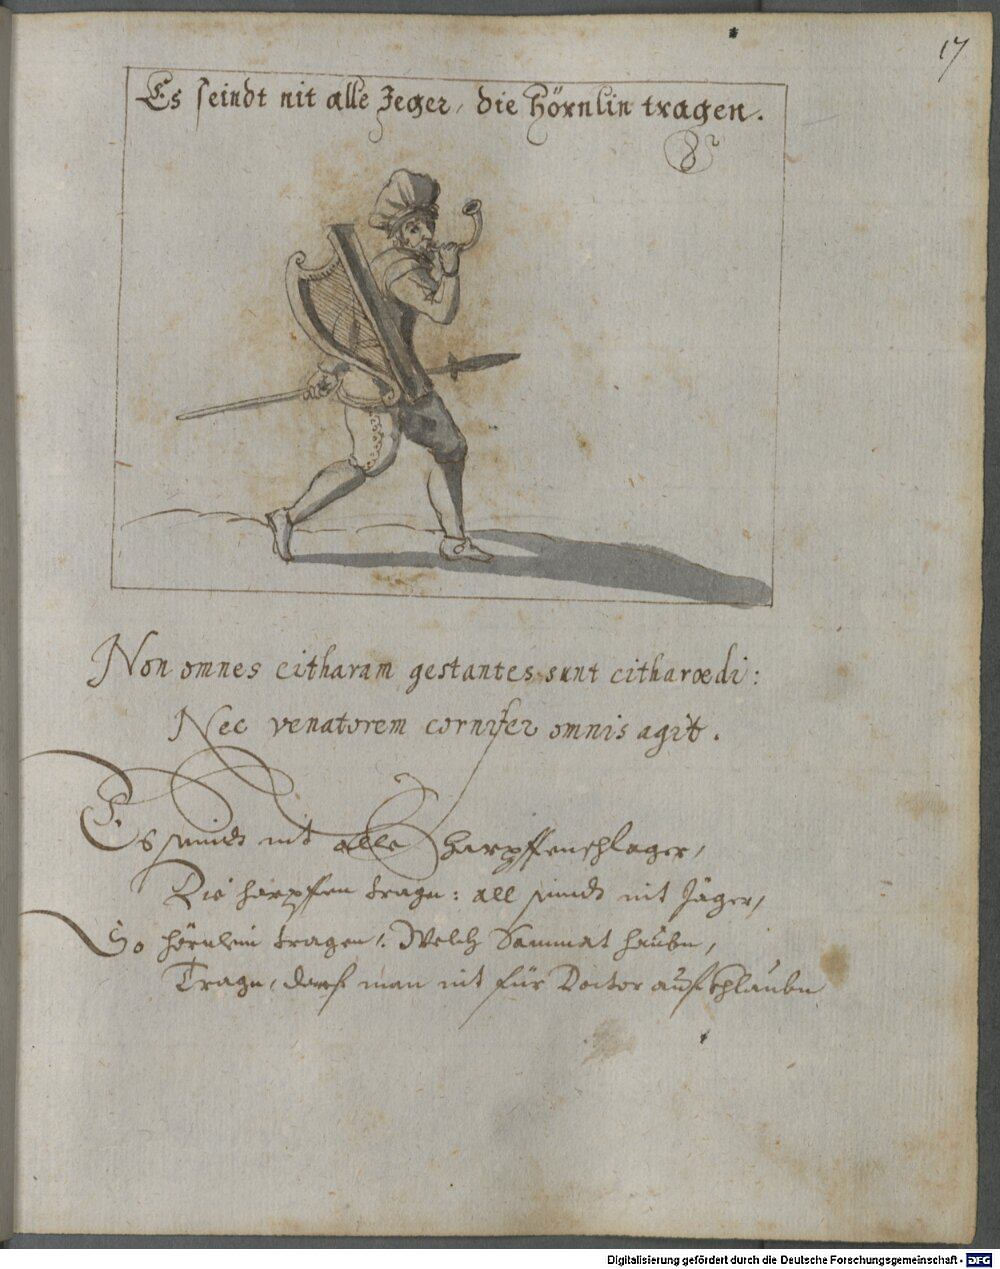 17
Es seindt nit alle Jeger, die Hörnlin tragen.
Non omnes citharam gestantes sunt citharœdi:
Nec venatorem cornifer omnis agit.
Es seindt nit alle Harpffenschlager,
Die harpffen tragn: all seindt nit Jäger,
So hörnlein tragen: Welch Sammat hauben,
Tragn, darf man nit für Doctor aufklauben
Digitalisierung gefördert durch die Deutsche Forschungsgemeinschaft - DFG